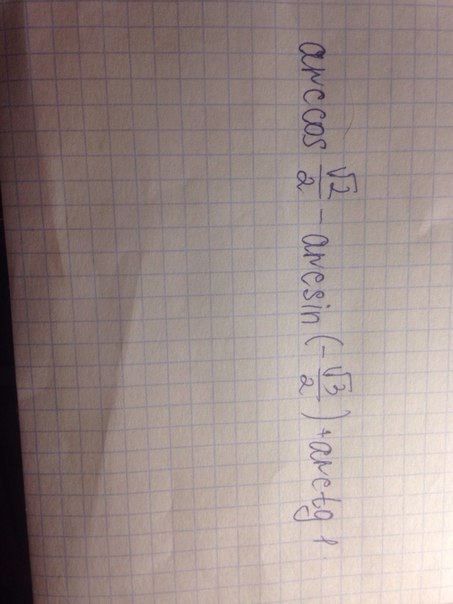 arccos √2/2 - arcsin (-√3/2) + arctg 1.